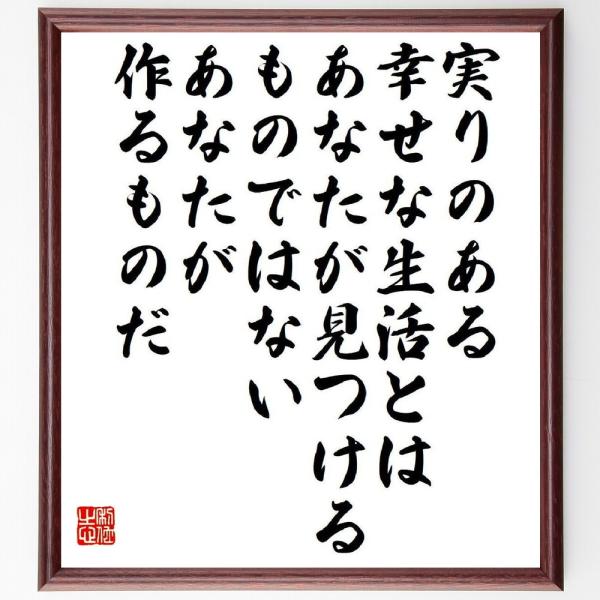 実りのある
幸せな生活とは
あなたが見つける
ものではない
あなたが
作るものだ